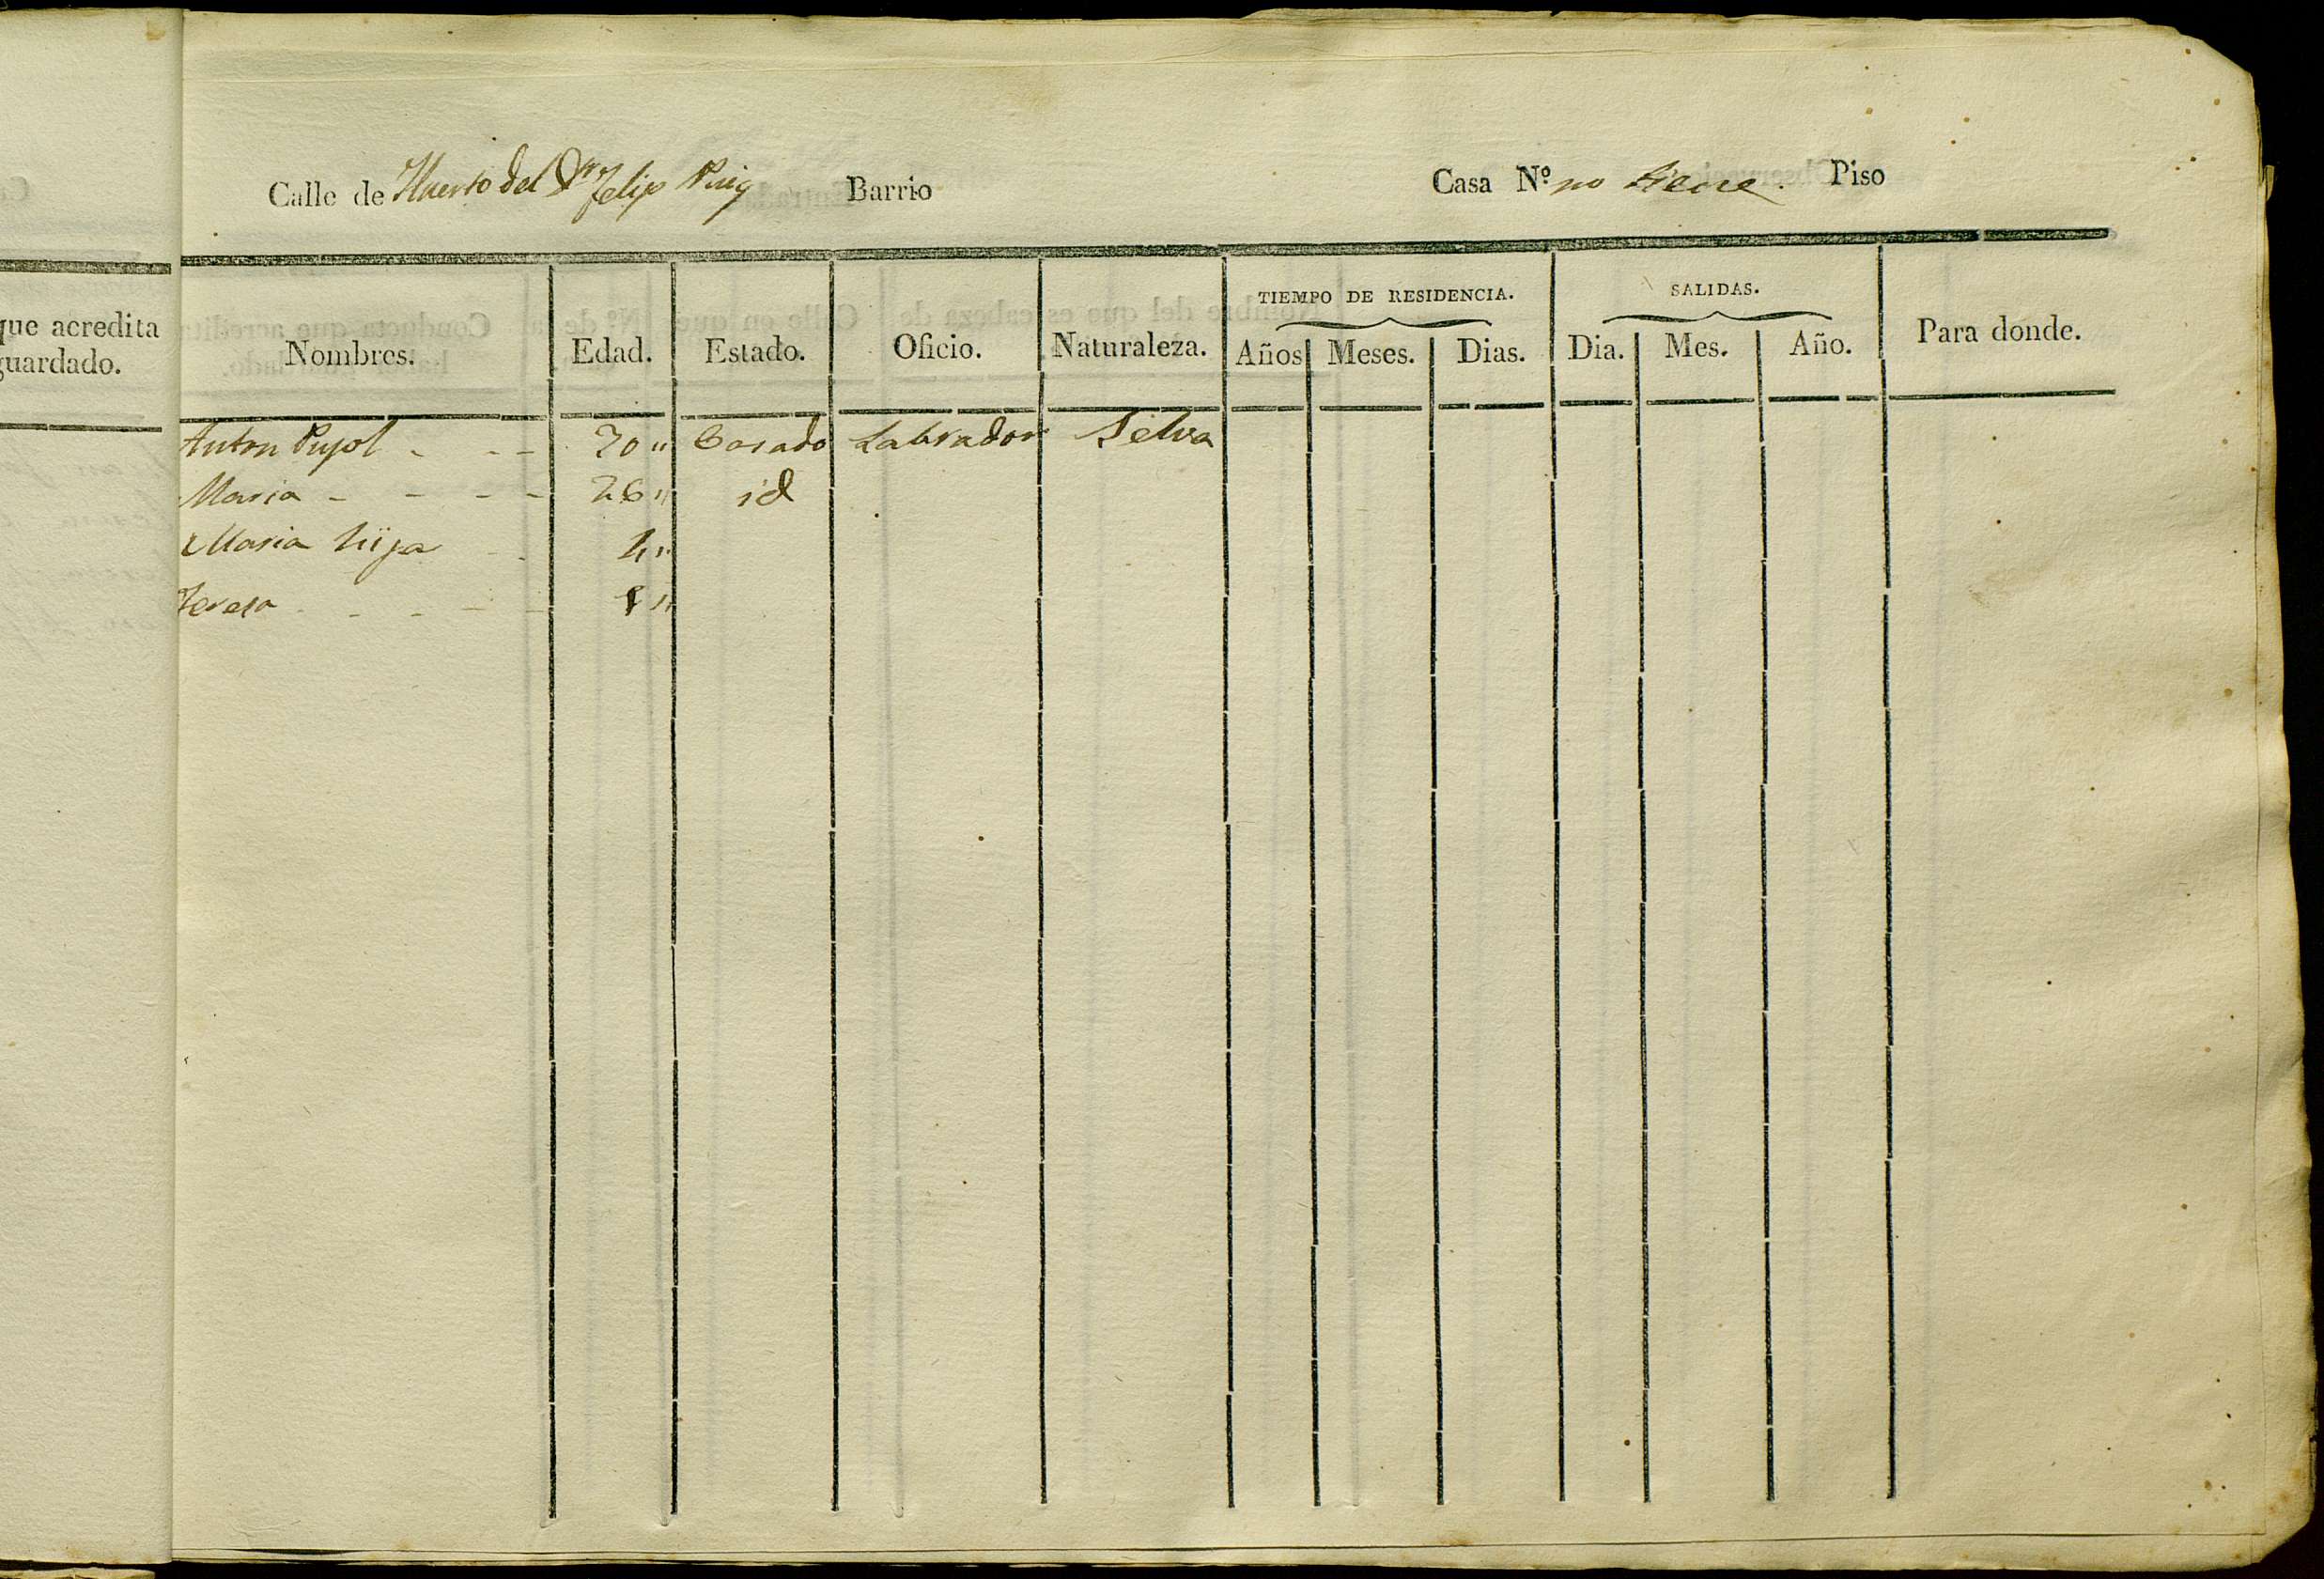 Calle de Huerto del Dr Felip Puig Barrio Casa Nº no tiene. Piso
que acredita
guardado.
Nombres. Edad. Estado. Oficio. Naturaleza. TIEMPO DE RESIDENCIA. Años Meses. Dias. SALIDAS. Dia. Mes. Año. Para donde.
Anton Pujol - - - 20 " Casado Labrador Selva
Maria - - - - 26 " id
Maria hija - - 4 "
Teresa - - - - - 1 "